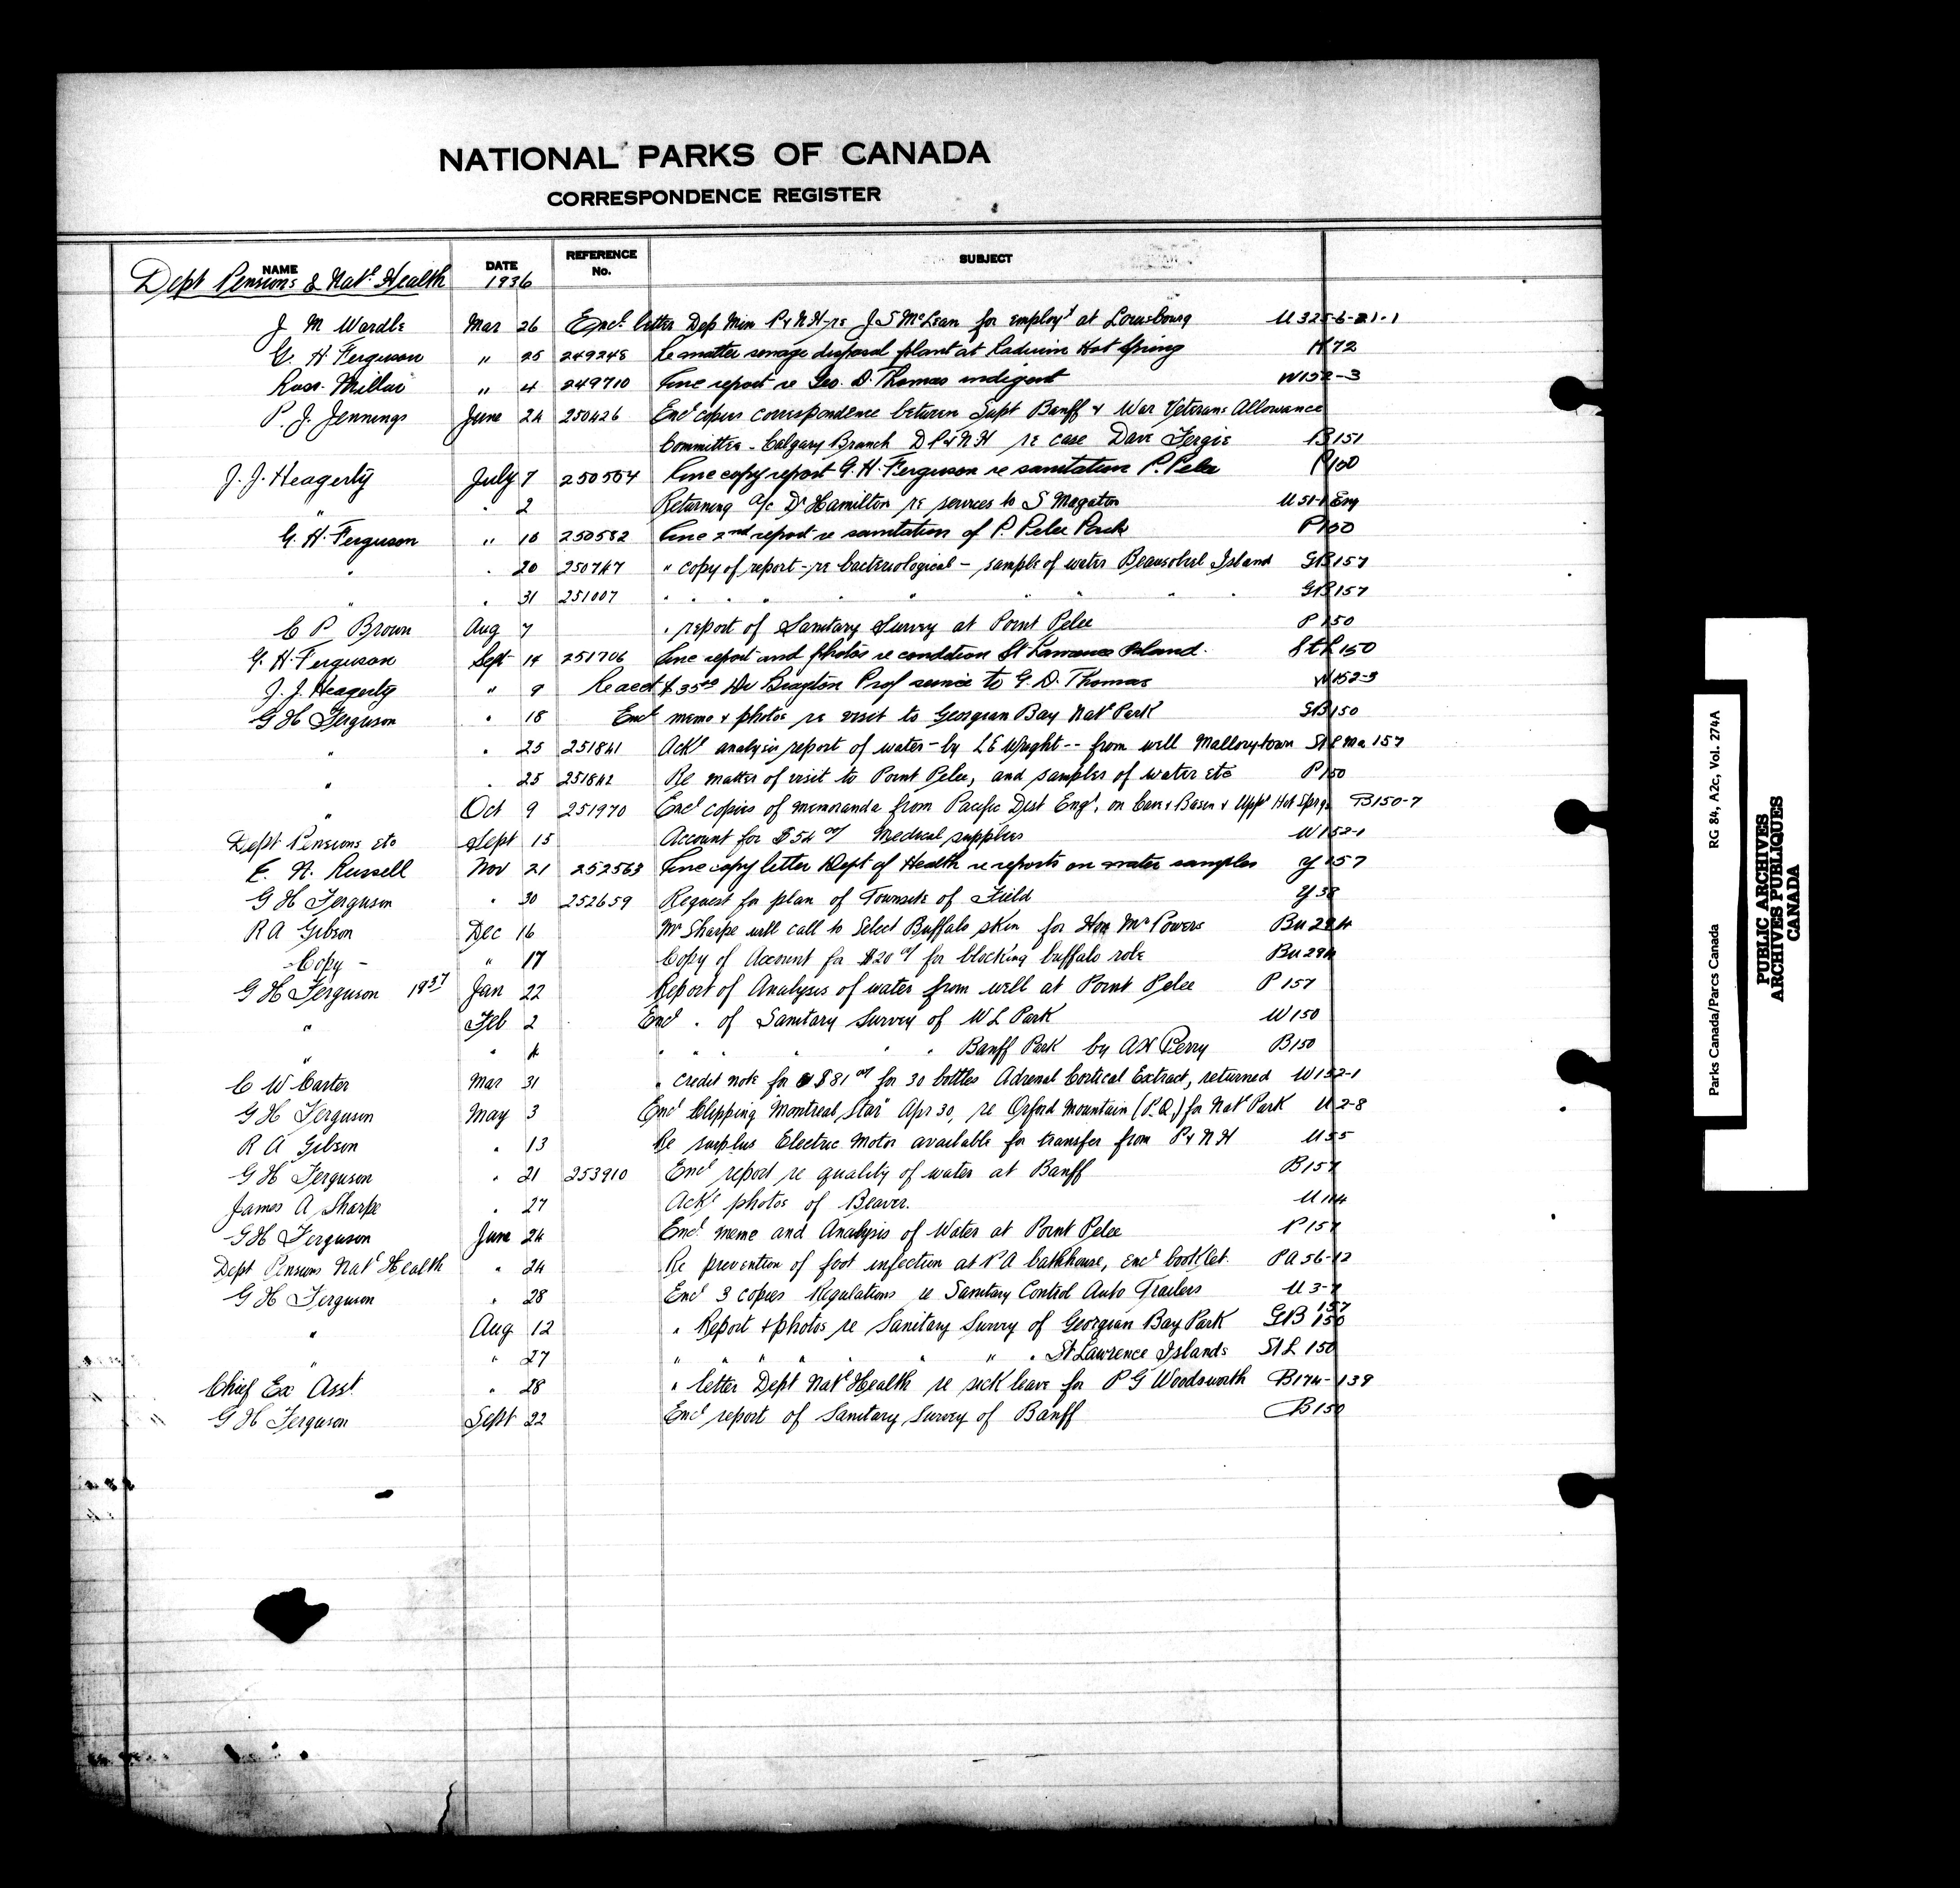 NATIONAL PARKS OF CANADA
CORRESPONDENCE REGISTER
NAME DATE REFERENCE No. SUBJECT
Dept Pensions & Natl Health 1936
J M Wardle Mar 26 Encl letter Dep Min P&NH re J S McLean for employt at Louisbourg U325-6-21-1
G. H Ferguson " 25 249248 Re matter sewage disposal plant at Radium Hot Spring H72
Ross Millar " 4 249710 Enc report re Geo. D. Thomas indigent W152-3
P. J. Jennings June 24 250426 Encl copies correspondence between Supt Banff & War Veterans Allowance
Committee - Calgary Branch D P&NH re case Dave Fergie B151
J. J. Heagerty July 7 250554 Enc copy report G. H. Ferguson re sanitation P. Pelee P100
" " 2 Returning a/c Dr Hamilton re services to S Magaton U51-1 Eng
G. H. Ferguson " 18 250582 Enc 2nd report re sanitation of P. Pelee Park P100
" " 20 250747 " copy of report - re bacteriological - sample of water Beausoleil Island GB157
" " 31 251007 " " " " " " " " " GB157
C P Brown Aug 7 " report of Sanitary Survey at Point Pelee P150
G. H. Ferguson Sept 14 251706 Enc report and photos re condition St Lawrence Island. St L 150
J. J. Heagerty " 9 Re acct $35.00 Dr Brayton Prof service to G. D. Thomas W152-3
G H Ferguson " 18 Encl memo & photos re visit to Georgian Bay Natl Park GB150
" " 25 251841 Ackg analysis report of water - by L E Wright -- from well Mallorytown St L Ma 157
" " 25 251842 Re matter of visit to Point Pelee, and samples of water etc P150
" Oct 9 251970 Encl copies of memoranda from Pacific Dist Engr, on Cave & Basin & Uppr Hot Sprgs B150-7
Dept Pensions etc Sept 15 Account for $54 00/ Medical supplies W152-1
E. N. Russell Nov 21 252563 Enc copy letter Dept of Health re reports on water samples Y157
G H Ferguson " 30 252659 Request for plan of Townsite of Field Y38
R A Gibson Dec 16 Mr Sharpe will call to Select Buffalo skin for Hon Mr Powers Bu 294
- Copy - " 17 Copy of Account for $20 00/ for blocking buffalo robe Bu 294
G H Ferguson 1937 Jan 22 Report of Analysis of water from well at Point Pelee P 157
" Feb 2 Encl " of Sanitary Survey of W L Park W150
" " 4 " " " " " Banff Park by A H Perry B150
C W Carter Mar 31 " credit note for $81 00/ for 30 bottles Adrenal Cortical Extract, returned W152-1
G H Ferguson May 3 Encl Clipping "Montreal Star" Apr 30, re Orford Mountain (P.Q.) for Natl Park U2-8
R A Gibson " 13 Re surplus Electric Motor available for transfer from P&NH U55
G H Ferguson " 21 253910 Encl report re quality of water at Banff B157
James A Sharpe " 27 Ackg photos of Beaver. U114
G H Ferguson June 24 Encl memo and Analysis of Water at Point Pelee P157
Dept Pensions Natl Health " 24 Re prevention of foot infection at P A bathhouse, encl booklet. PA 56-12
G H Ferguson " 28 Encl 3 copies Regulations re Sanitary Control Auto Trailers U3-7
" Aug 12 " Report & photos re Sanitary Survey of Georgian Bay Park GB 157 150
" " 27 " " " " " " " " St Lawrence Islands St L 150
Chief Ex Asst. " 28 " letter Dept Natl Health re sick leave for P G Woodsworth B174-139
G H Ferguson Sept 22 Encl report of Sanitary Survey of Banff B150
Parks Canada/Parcs Canada RG 84, A2c, Vol. 274A
PUBLIC ARCHIVES
ARCHIVES PUBLIQUES
CANADA